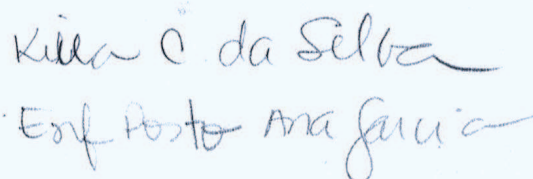 Killa C. da Silva
Enf Posto Ana Garcia